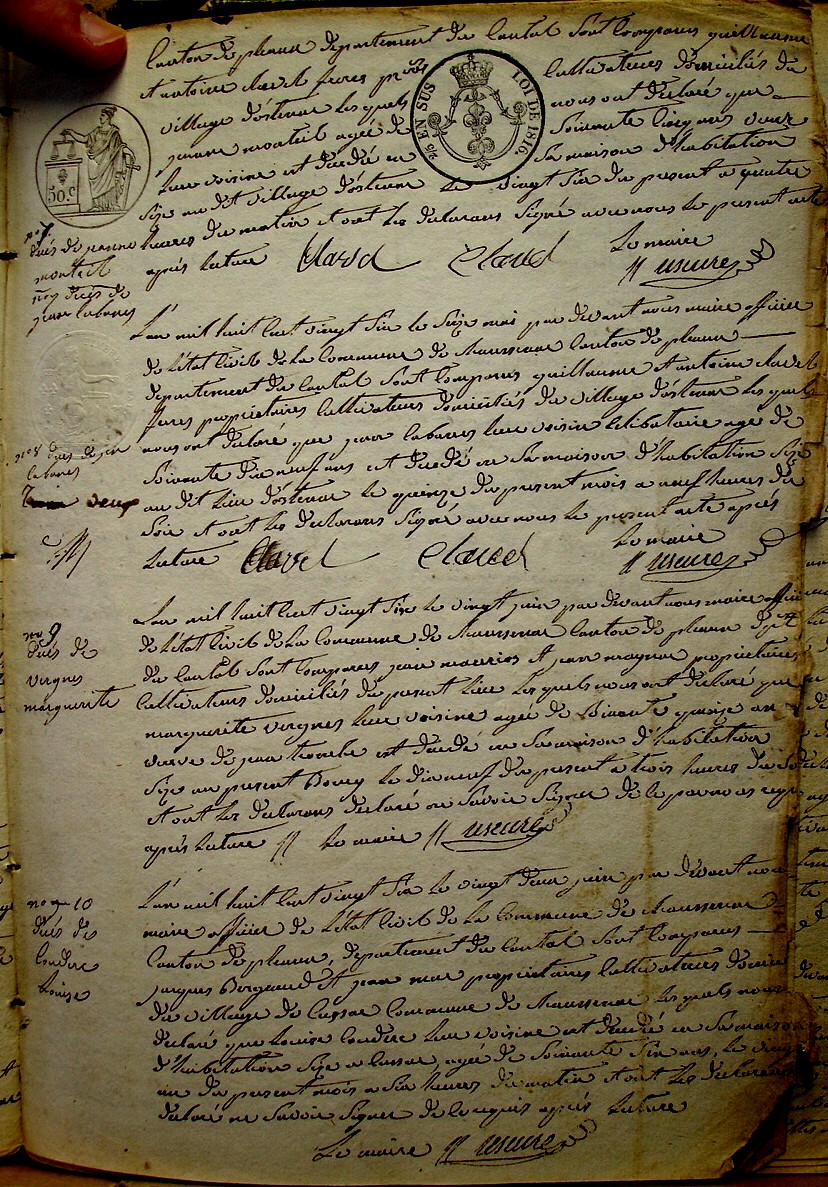 Canton de pleaux departement du Cantal sont Comparus guillaume
et antoine clavel freres pres Cultivateurs domiciliés du
village d'ostenac les quels nous ont declaré que
jeanne monteil agée de soixante cinq ans veuve
leur voisine est decedé en sa maison d'habitation
size au dit village d'ostenac le vingt six du present a quatre
heures du matin et ont les declarans signé avec nous le present acte
après lecture Clavel Clavel Le maire
Useure
1/10 EN SUS LOI DE 1816.
50.C
no 7.
decés de jeanne
monteil
no 8 decés de
jean labarres
L'an mil huit cent vingt six le seize mai par devant nous maire officier
de l'état civil de la Commune de Maussenac Canton de pleaux
departement du Cantal sont Comparus guillaume et antoine clavel
freres propriétaires Cultivateurs domiciliés du village d'ostenac les quels
nous ont declaré que jean labarres leur voisin célibataire agé de
soixante dix neuf ans est decedé en sa maison d'habitation size
au dit lieu d'ostenac le quinze du present mois a neuf heures du
soir et ont les declarans signé avec nous le present acte après
lecture Clavel Clavel Le maire
Useure
no 8 decés de jean
labarres
deux
no 9
decés de
vergnes
marguerite
L'an mil huit cent vingt six le vingt juin par devant nous maire officier
de l'état civil de la Commune de Maussenac Canton de pleaux dept
du Cantal sont Comparus jean mourios et jean magnac propriétaires
Cultivateurs domiciliés du present lieu les quels nous ont declaré que
marguerite vergnes leur voisine agée de soixante quinze ans
veuve de jean est decedé en sa maison d'habitation
size au present Bourg le dix neuf du present a trois heures du soir
et ont les declarans declaré ne savoir signer de ce par nous requis
après lecture Le maire Useure
no 10
decés de
Couderc
Louise
L'an mil huit cent vingt six le vingt deux juin par devant nous
maire officier de l'état civil de la Commune de Maussenac
Canton de pleaux, departement du Cantal sont Comparus
jacques Bergeaud et jean mas propriétaires Cultivateurs
du village de Cussac Commune de Maussenac les quels nous
declaré que Louise Couderc leur voisine est decedé en sa maison
d'habitation size a Cussac, agée de soixante six ans, le vingt
un du present mois a six heures du matin et ont les declarans
declaré ne savoir signer de ce requis après lecture
Le maire Useure